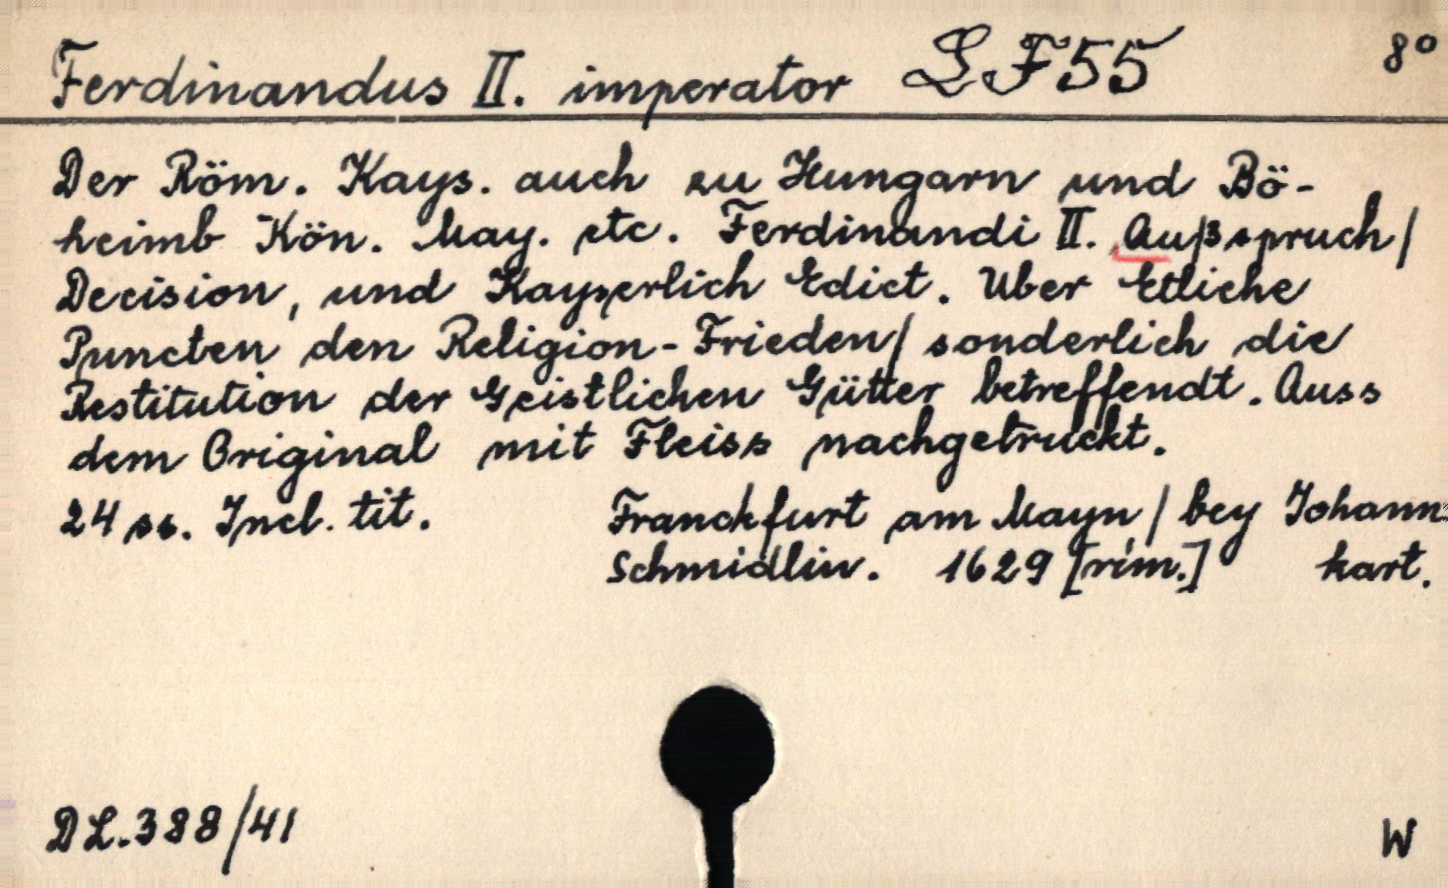 Ferdinandus II. imperator LF55 8°
Der Röm. Kays. auch zu Hungarn und Bö-
heimb Kön. May. etc. Ferdinandi II. Außspruch/
Decision, und Kayserlich Edict. Uber Etliche
Puncten den Religion-Frieden/ sonderlich die
Restitution der Geistlichen Gütter betreffendt. Auss
dem Original mit Fleiss nachgetruckt.
24 ss. Incl. tit. Franckfurt am Mayn/ bey Johann
Schmidlin. 1629 [rím.] kart.
DL.388/41 W